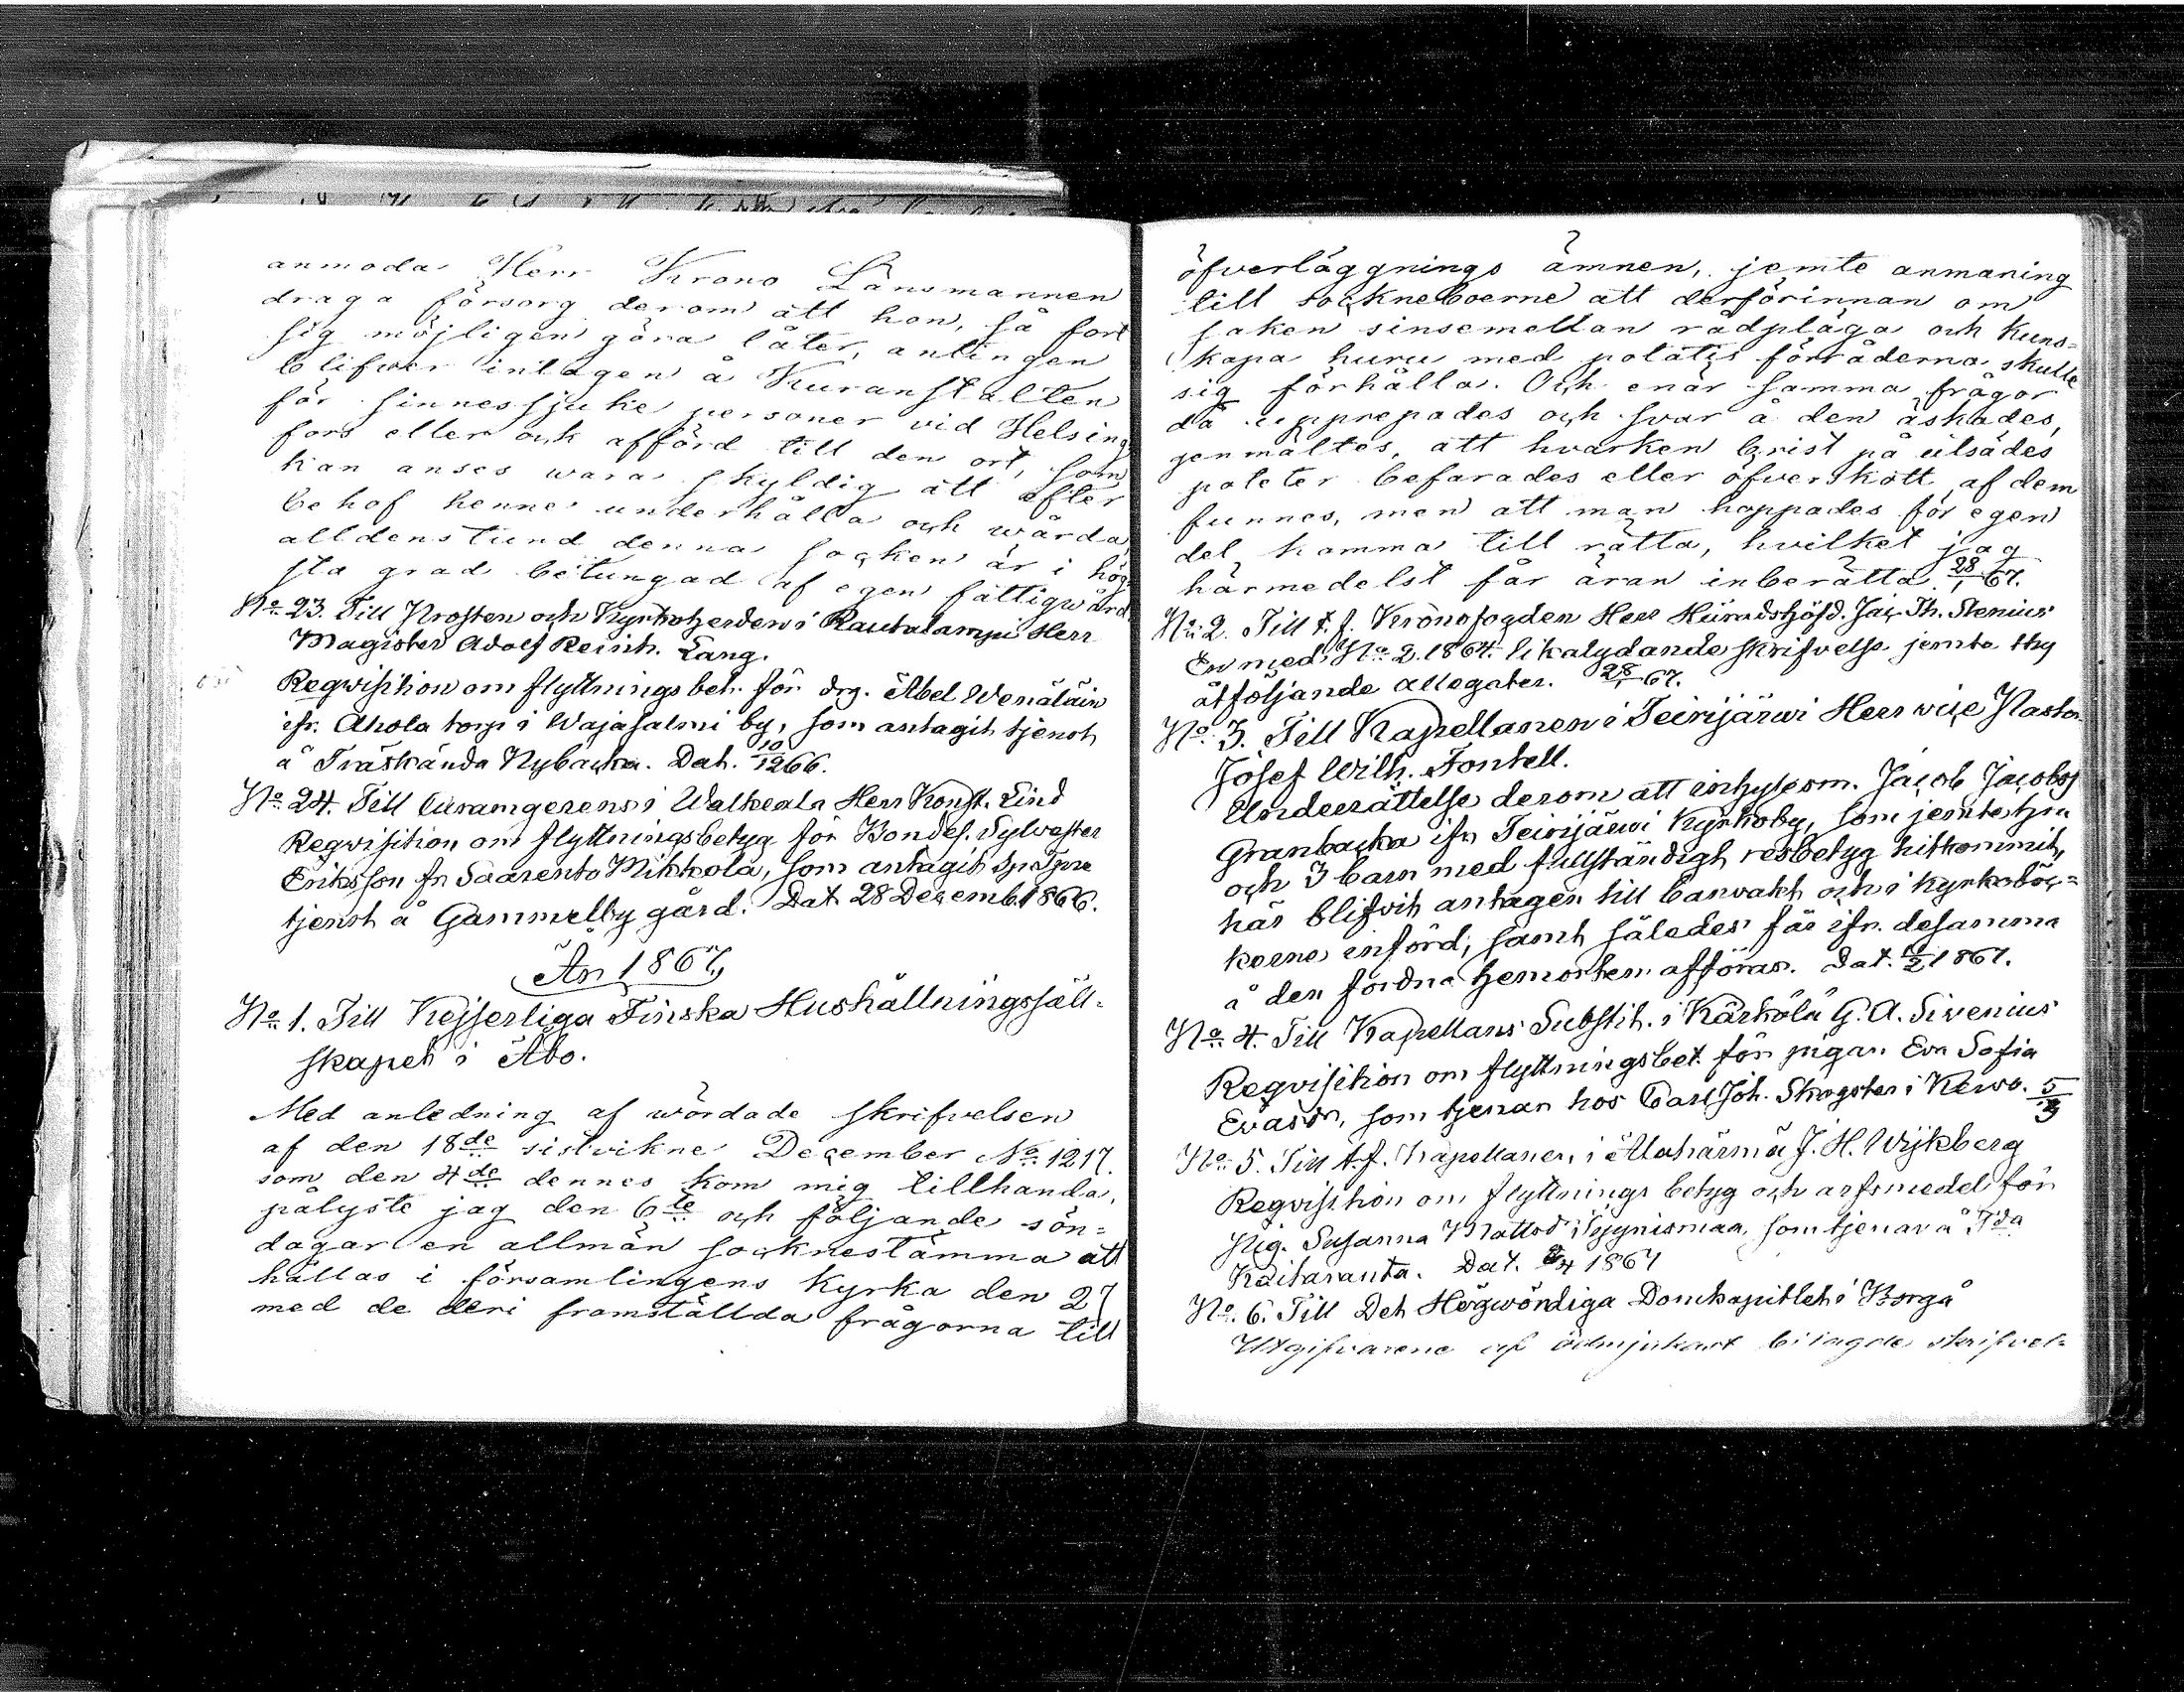 anmoda Herr Krono Länsmannen
draga försorg derom att hon, så fort
sig möjligen göra låter, antingen
blifver intagen å Kuranstalten
för sinnessjuke personer vid Helsing
fors eller ock afförd till den ort, som
kan anses wara skyldig att efter
behof henne underhålla och wårda,
alldenstund denna socken är i hög
sta grad betungad af egen fattigwård
No 23. Till Prosten och Kyrkoherden i Rautalampi Herr
Magister Adolf Reinh. Lang.
Reqwisition om flyttningsbet. för drg. Abel Wenäläin
ifr. Ahola torp i Wajasalmi by, som antagit tjenst
å Träskända Nybacka. Dat. 10/12 66.
No 24. Till Curamgerens i Walkeala Herr Konst. Lind
Reqwisition om flyttningsbetyg för Bondes. Sylvester
Eriksson fr. Saarento Mikkola, som antagit
tjenst å Gammelby gård. Dat 28 Decemb. 1866.
År 1867,
No 1. Till Kejserliga Finska Hushållningssäll-
skapet i Åbo.
Med anledning af wördade skrifvelsen
af den 18de sistvikne December No 1217.
som den 4de dennes kom mig tillhanda,
pålyste jag den 6te och följande sön-
dagar en allmän socknestämma att
hållas i församlingens kyrka den 27
med de deri framställda frågorna till
öfverläggnings ämnen, jemte anmaning
till sockneboerne att derförinnan om
saken sinsemellan rådpläga och kuns-
kapa huru med potatis förråderna skulle
sig förhålla. Och enär samma frågor
då upprepades och svar å den äskades,
genmältes, att hvarken brist på utsädes
poteter befarades eller öfverskott af dem
funnes, men att man hoppades för egen
del komma till rätta, hvilket jag
härmedelst får äran inberätta. 28/1 67.
No 2. Till t. f. Kronofogden Herr Häradshöfd. Jac. Th. Stenius
En med No 2. 1864. likalydande skrifvelse jemte thy
åtföljande allegater. 28/1 67.
No 3. Till Kapellanen i Teirijärwi Herr vice Pastor
Josef Wilh. Fontell.
Underrättelse derom att inhysesm. Jacob Jacobss
Granbacka ifr. Teirijärwi Kyrkoby, som jemte hru
och 3 barn med fullständigt resbetyg hitkommit,
här blifvit antagen till banvakt och i kyrkoböc-
kerne införd, samt således får ifr. desamma
å den fordna hemorten afföras. Dat. 1867.
No 4. Till Kapellans Substit. i Kärkölä G. A. Sivenius
Reqvisition om flyttningsbet. för pigan Eva Sofia
Evasdr, som tjenar hos Carl Joh. Skogster i Kerwo. 5/3
No 5. Till t. f. Kapellanen i Alahärmä J. H. Wijkberg
Reqvisition om flyttnings betyg och arfsmedel för
Pig. Susanna Mattsdr, som tjenar å
Kaitaranta. Dat. 1867
No 6. Till Det Högwördiga Domkapitlet i Borgå
Utgifvarene af ödmjukast bilagde skrifvel-